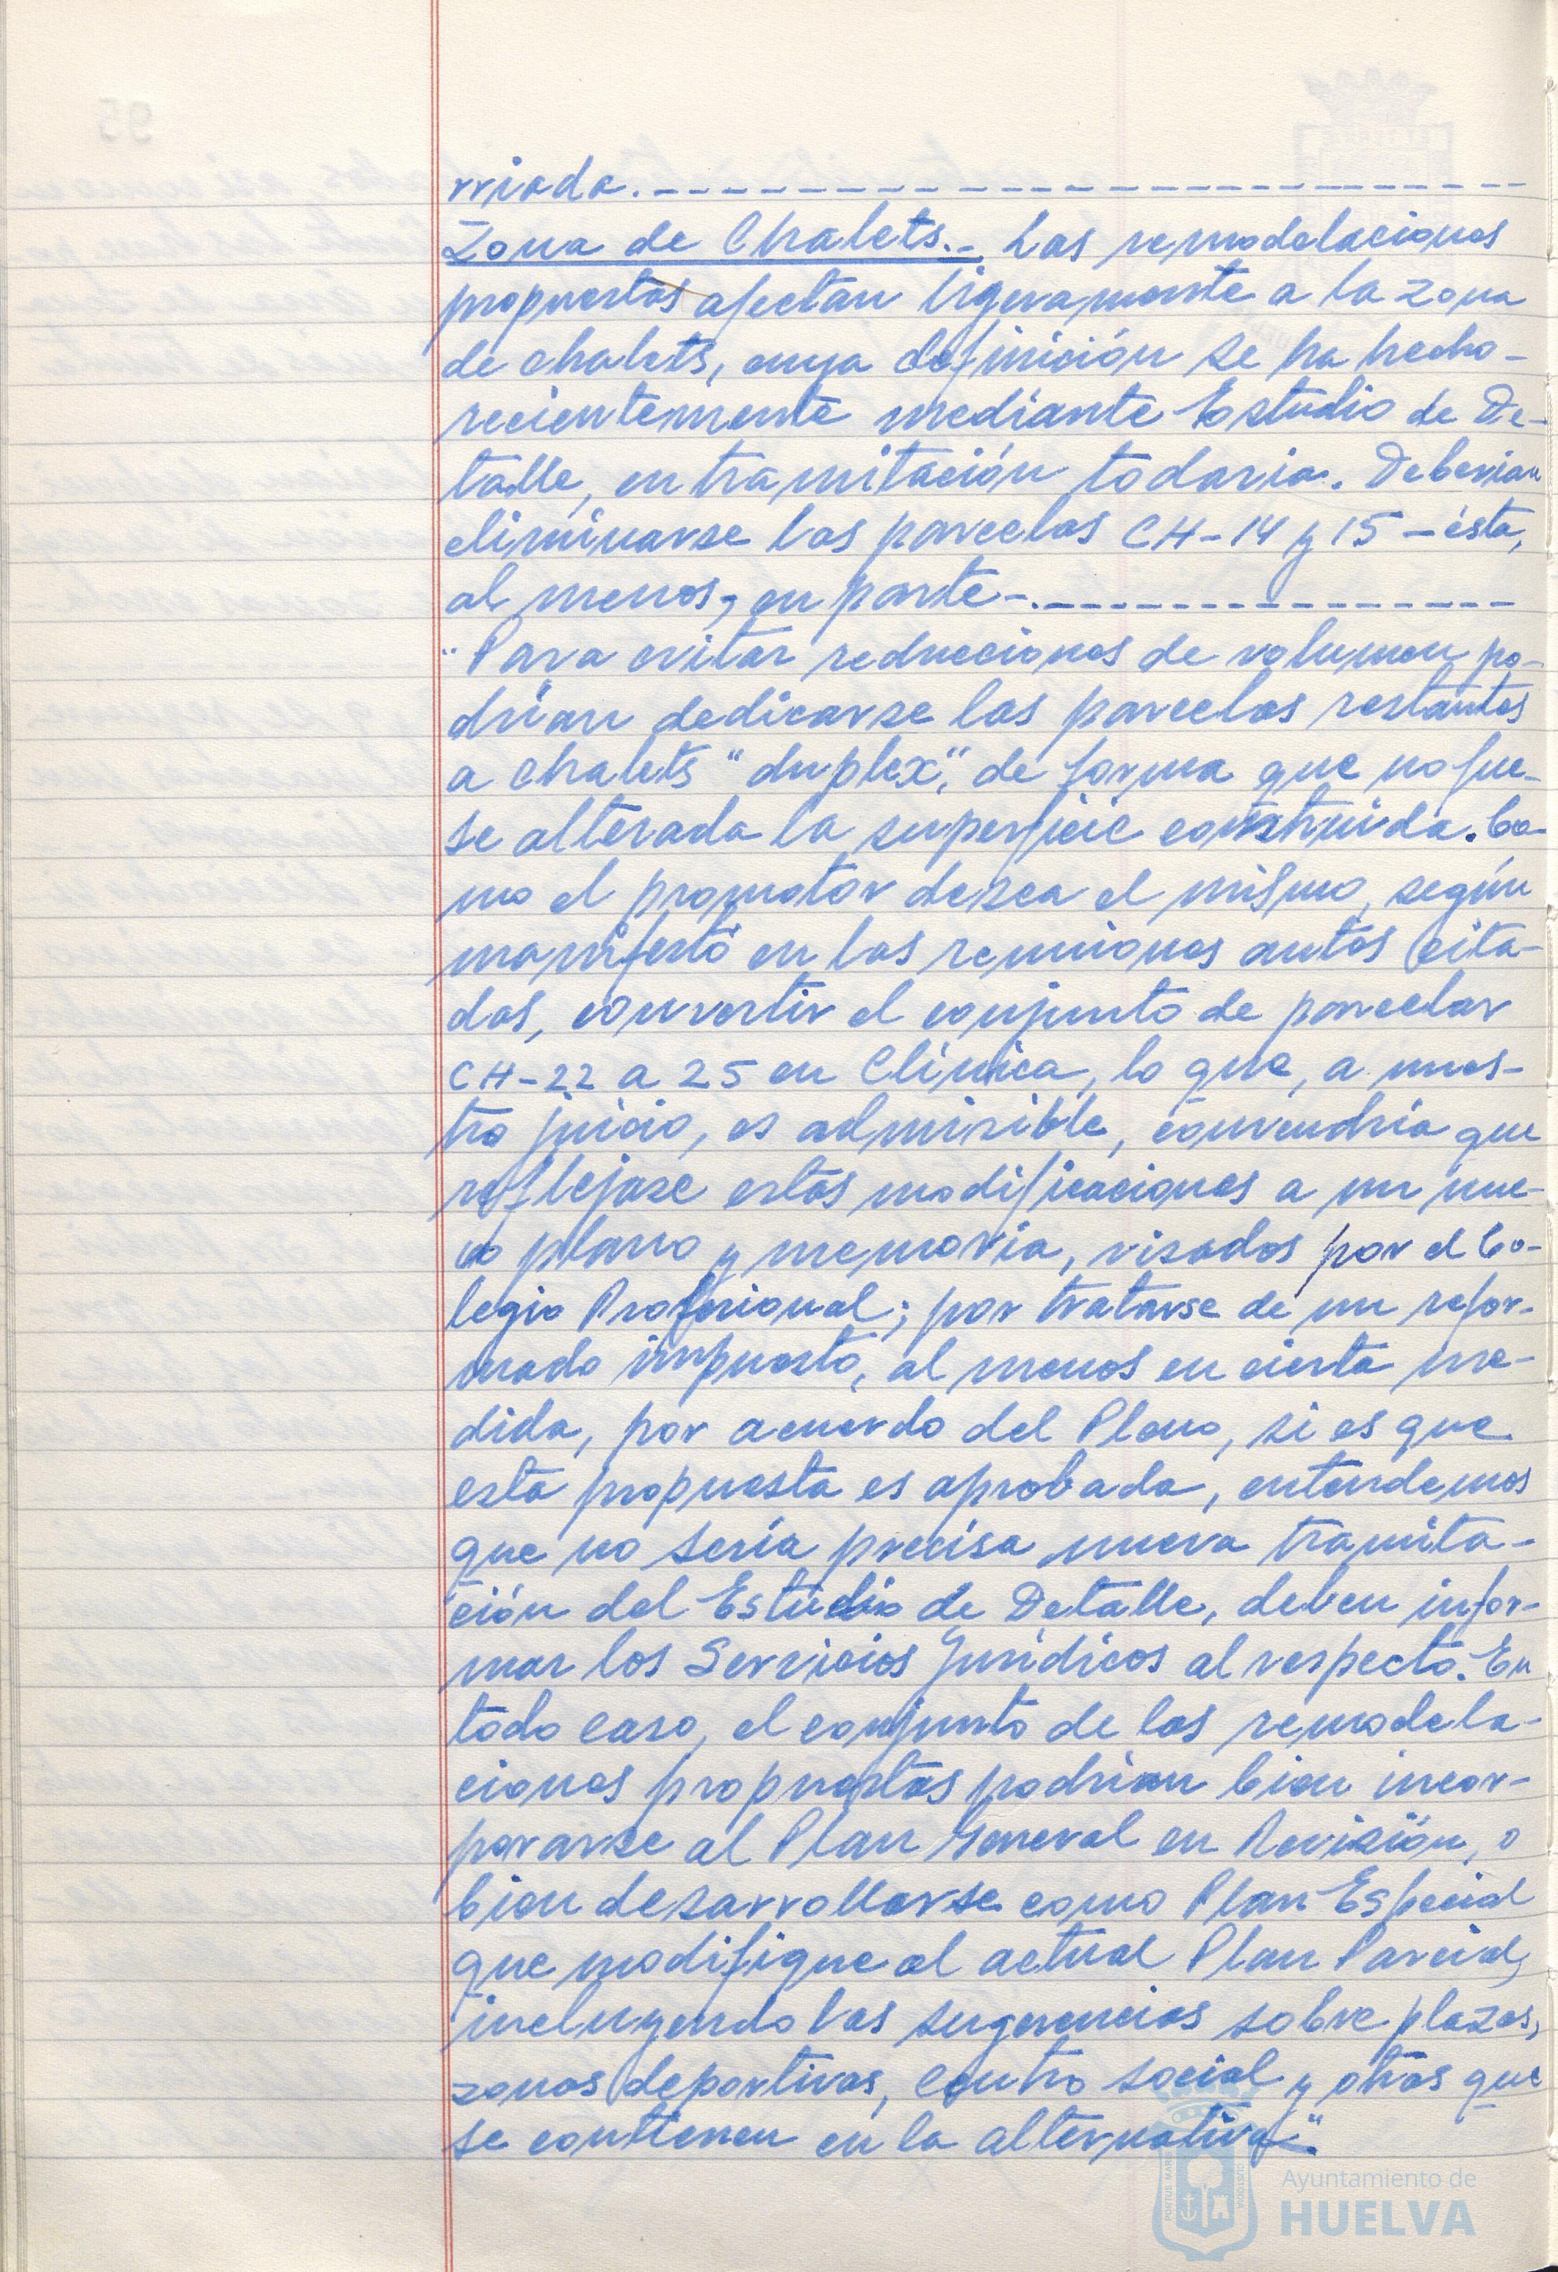 rriada.
Zona de Chalets.- Las remodelaciones
propuestas afectan ligeramente a la zona
de chalets, cuya definición se ha hecho-
recientemente mediante Estudio de De-
talle, en tramitación todavia. Deberian
eliminarse las parcelas CH-14 y 15 - ésta,
al menos, en parte-.
"Para evitar reducciones de volumen po-
drian dedicarse las parcelas restantes
a chalets "duplex", de forma que no fue-
se alterada la superficie construida. Co-
mo el promotor desea el mismo, según
manifestó en las reuniones antes cita-
das, convertir el conjunto de parcelas
CH-22 a 25 en Clinica, lo que, a nues-
tro juicio, es admisible, convendria que
reflejase estas modificaciones a un nue-
vo plano y memoria, visados por el Co-
legio Profesional; por tratarse de un refor-
mado impuesto, al menos en cierta me-
dida, por acuerdo del Pleno, si es que
esta propuesta es aprobada, entendemos
que no sería precisa nueva tramita-
ción del Estudio de Detalle, deben infor-
mar los Servicios Juridicos al respecto. En
todo caso, el conjunto de las remodela-
ciones propuestas podrian bien incor-
porarse al Plan General en Revisión, o
bien desarrollarse como Plan Especial
que modifique al actual Plan Parcial,
incluyendo las sugerencias sobre plazas,
zonas deportivas, Centro social y otras que
se contienen en la alternativa".
Ayuntamiento de
HUELVA